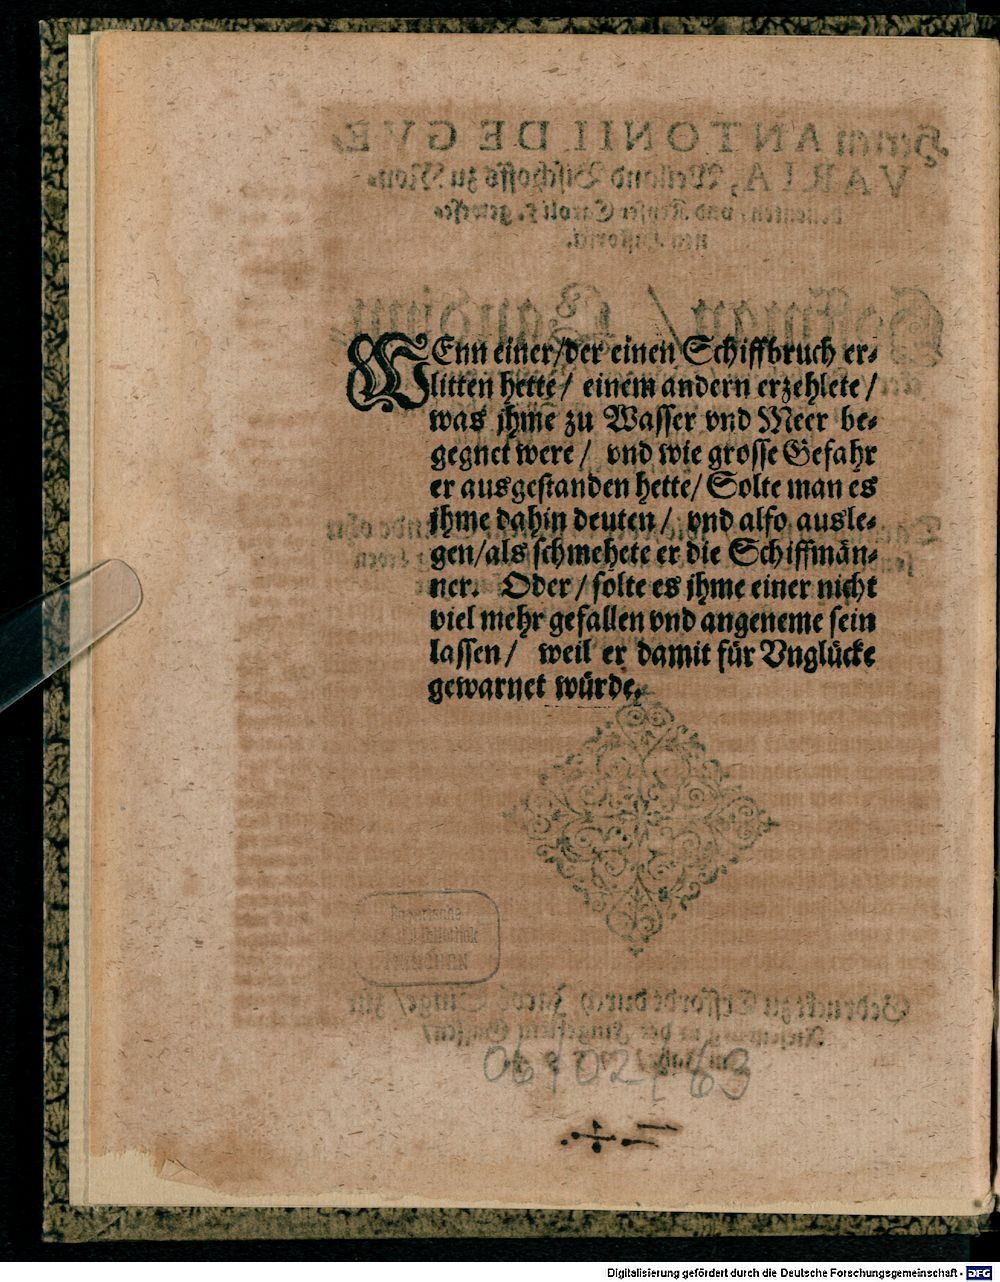 WEnn einer/der einen Schiffbruch er⸗
litten hette/ einem andern erzehlete/
was jhme zu Wasser vnd Meer be⸗
gegnet were/ vnd wie grosse Gefahr
er ausgestanden hette/ Solte man es
jhme dahin deuten/ vnd also ausle⸗
gen/als schmehete er die Schiffmän⸗
ner. Oder/ solte es jhme einer nicht
viel mehr gefallen vnd angeneme sein
lassen/ weil er damit für Vnglücke
gewarnet würde.
Bayerische
MÜNCHEN
06/02/63
Digitalisierung gefördert durch die Deutsche Forschungsgemeinschaft - DFG